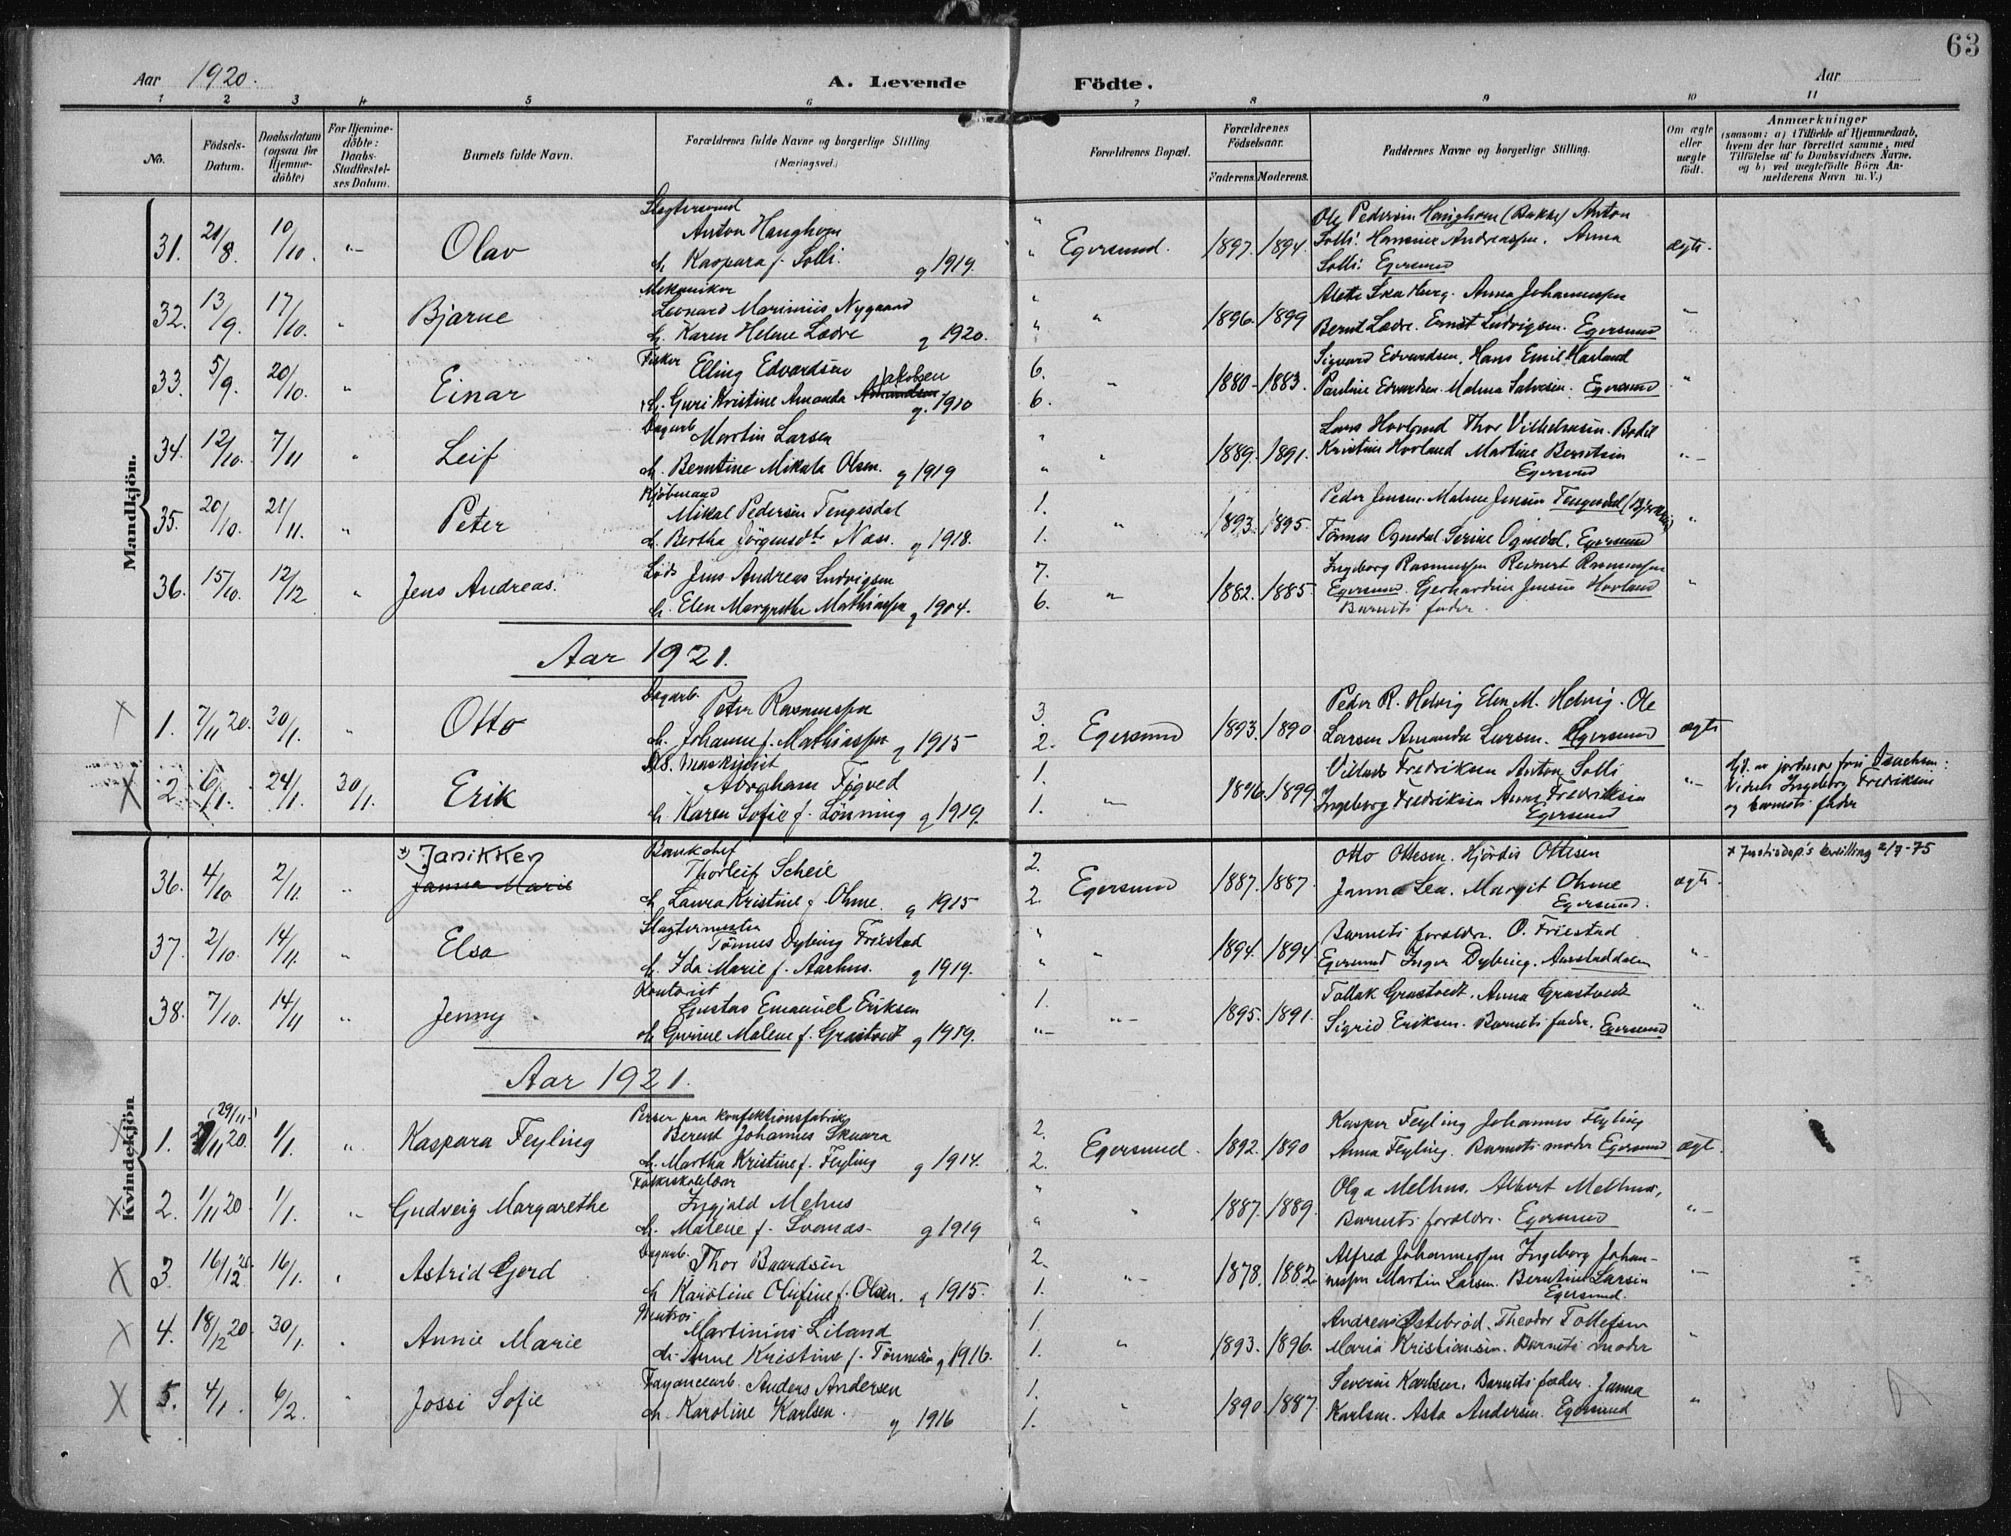 63
Aar 1920.
A. Levende Födte.
Aar
1 2 3 4 5 6 7 8 9 10 11
No.
Födsels-Datum.
Daabsdatum (ogsaa for Hjemme-döbte)
For Hjemme-döbte: Daabs-Stadfæstelses Datum.
Barnets fulde Navn.
Forældrenes fulde Navne og borgerlige Stilling (Næringsvei.)
Forældrenes Bopæl.
Forældrenes Födselsaar.
Faderens. Moderens.
Faddernes Navne og borgerlige Stilling.
Om ægte eller uægte födt.
Anmærkninger
(saasom: a) i Tilfælde af Hjemmedaab, hvem der har forrettet samme, med Tilföielse af to Daabsvidners Navne. og b) ved uægtefödte Börn Anmelderens Navn m. V.)
Mandkjön.
Slagtersvend
31. 8. 10/10. Olav Anton Haughom
h. Kaspara f. Solli. g 1919.
Egersund. 1897. 1894. Ole Pedersen Haughom Anton
Solli. Andreassen. Anna
Solli: Egersund
ægte.
Mekaniker
32. 13/9. 17/10. Bjarne Leonard Marinius Nygaard
h. Karen Helene Lædre g 1920.
1896. 1899 Anna Johannessen
Bernt Lædre. Ernst Ludvigsen. Egersund
33. 5/9. 20/10. Einar Fisker Elling Edvardsen
h. Guri Kristine Amanda Jakobsen g. 1910
6. 6. 1880. 1883. Sigvard Edvardsen, Hans Emil Havland
Pauline Edvardsen. Malena Salvesen. Egersund
34. 12/10. 7/11 Leif Dagarb. Martin Larsen
h. Berntine Mikala Olsen. g 1919
1889. 1891. Lars Hovland Thor Vilhelmsen. Bodil
Kristine Hovland Martine Berntsen
Egersund
Kjöbmand
35. 20/10. 21/11. Peter Mikal Pedersen Tengesdal
h. Bertha Jörgensdtr Næss. g 1918.
1. 1. 1893. 1895. Peder Jensen. Malene Jensen Tengesdal
Tönnes Ognedal Serine Ognedal, Egersund
36. 15/10. 12/12 Jens Andreas. Lods Jens Andreas Ludvigsen
h. Elen Margrethe Mathiassen g 1904.
7. 6. 1882. 1885. Ingeborg Rasmussen Reinert Rasmussen
Egersund. Gerhardine Jensen Hovland
Barnets fader.
Aar 1921.
1. 7/11 20. 30/1. Otto Dagarb. Peter Rasmussen
h. Johanne f. Mathiassen g 1915
3. 2. Egersund 1893. 1890 Peder R. Helvig Elen M. Helvig. Ole
Larsen Amanda Larsen. Egersund ægte
2. 6/1. 24/1. 30/1. Erik
Abraham Tigved
h. Karen Sofie f. Lönning g 1919.
1. 1. 1896. 1899 Fredriksen Anton Solli
Ingeborg Fredriksen Anna Fredriksen
Egersund
Hj. av jordmor
Ingeborg Fredriksen
og barnets fader
Kvindekjön
36. 4/10. 2/11. x) Janikken
Janna Marie
Bankchef
Thorleif Scheie
h. Laura Kristine f. Ohme. g 1915
2. 2. Egersund 1887. 1887. Otto Ottesen. Hjördis Ottesen
Janna Lea. Margit Ohme
Egersund.
ægte.
x Justisdep's bevilling 2/7-75
37. 2/10. 14/11. Elsa Slagtermester
Tönnes Dybing Friestad
h. Ida Marie f. Aarhus. g 1919.
1894. 1894 Barnets forældre. O. Friestad
Egersund Inger Dybing. Aarstaddalen
38. 7/10. 14/11 Jenny Kontorist
Gustav Emanuel Eriksen
h. Gurine Malene f. Grastvedt g 1919.
1. 1895. 1891. Tollak Grastvedt. Anna Grastvedt
Sigrid Eriksen. Barnets fader. Egersund
Aar 1921.
(29/11.)
1. 11 20. 1/1. Kaspara Feyling Perser paa konfektionsfabrik
Berent Johannes Skaara
h. Martha Kristine f. Feyling g 1914.
2. 2. Egersund. 1892. 1890 Kasper Feyling Johannes Feyling
Anna Feyling. Barnets moder Egersund ægt.
2. 1/11 20. 1/1. Gudveig Margarethe Folkeskolelærer
Ingjald Mehus
h. Malene f. Svanæs g 1919
1887. 1889. Olga Melhus. Albert Melhus,
Barnets forældre. Egersund
3. 16/12 20. 16/1. Astrid Gjerd Dagarb. Thor Baardsen
h Karoline Olufine f. Olsen. g 1915.
2. 1. 1878. 1882 Alfred Johannessen Ingeborg Johan-
nessen Martin Larsen. Berntine Larsen
Egersund.
4. 18/12 20. 30/1. Annie Marie
Martinius Liland
h. Anne Kristine f. Tönnesen g 1916.
1. 1. 1893. 1896. Andreas Östebröd. Theodor Tollefsen
Maria Kristiansen. Barnets moder
5. 4/1. 6/2. Jossi Sofie Fayancearb. Anders Andersen
h. Karoline Karlsen. g 1916
1. 1. 1890. 1887. Severin Karlsen. Barnets fader. Janna
Karlsen. Asta Andersen. Egersund